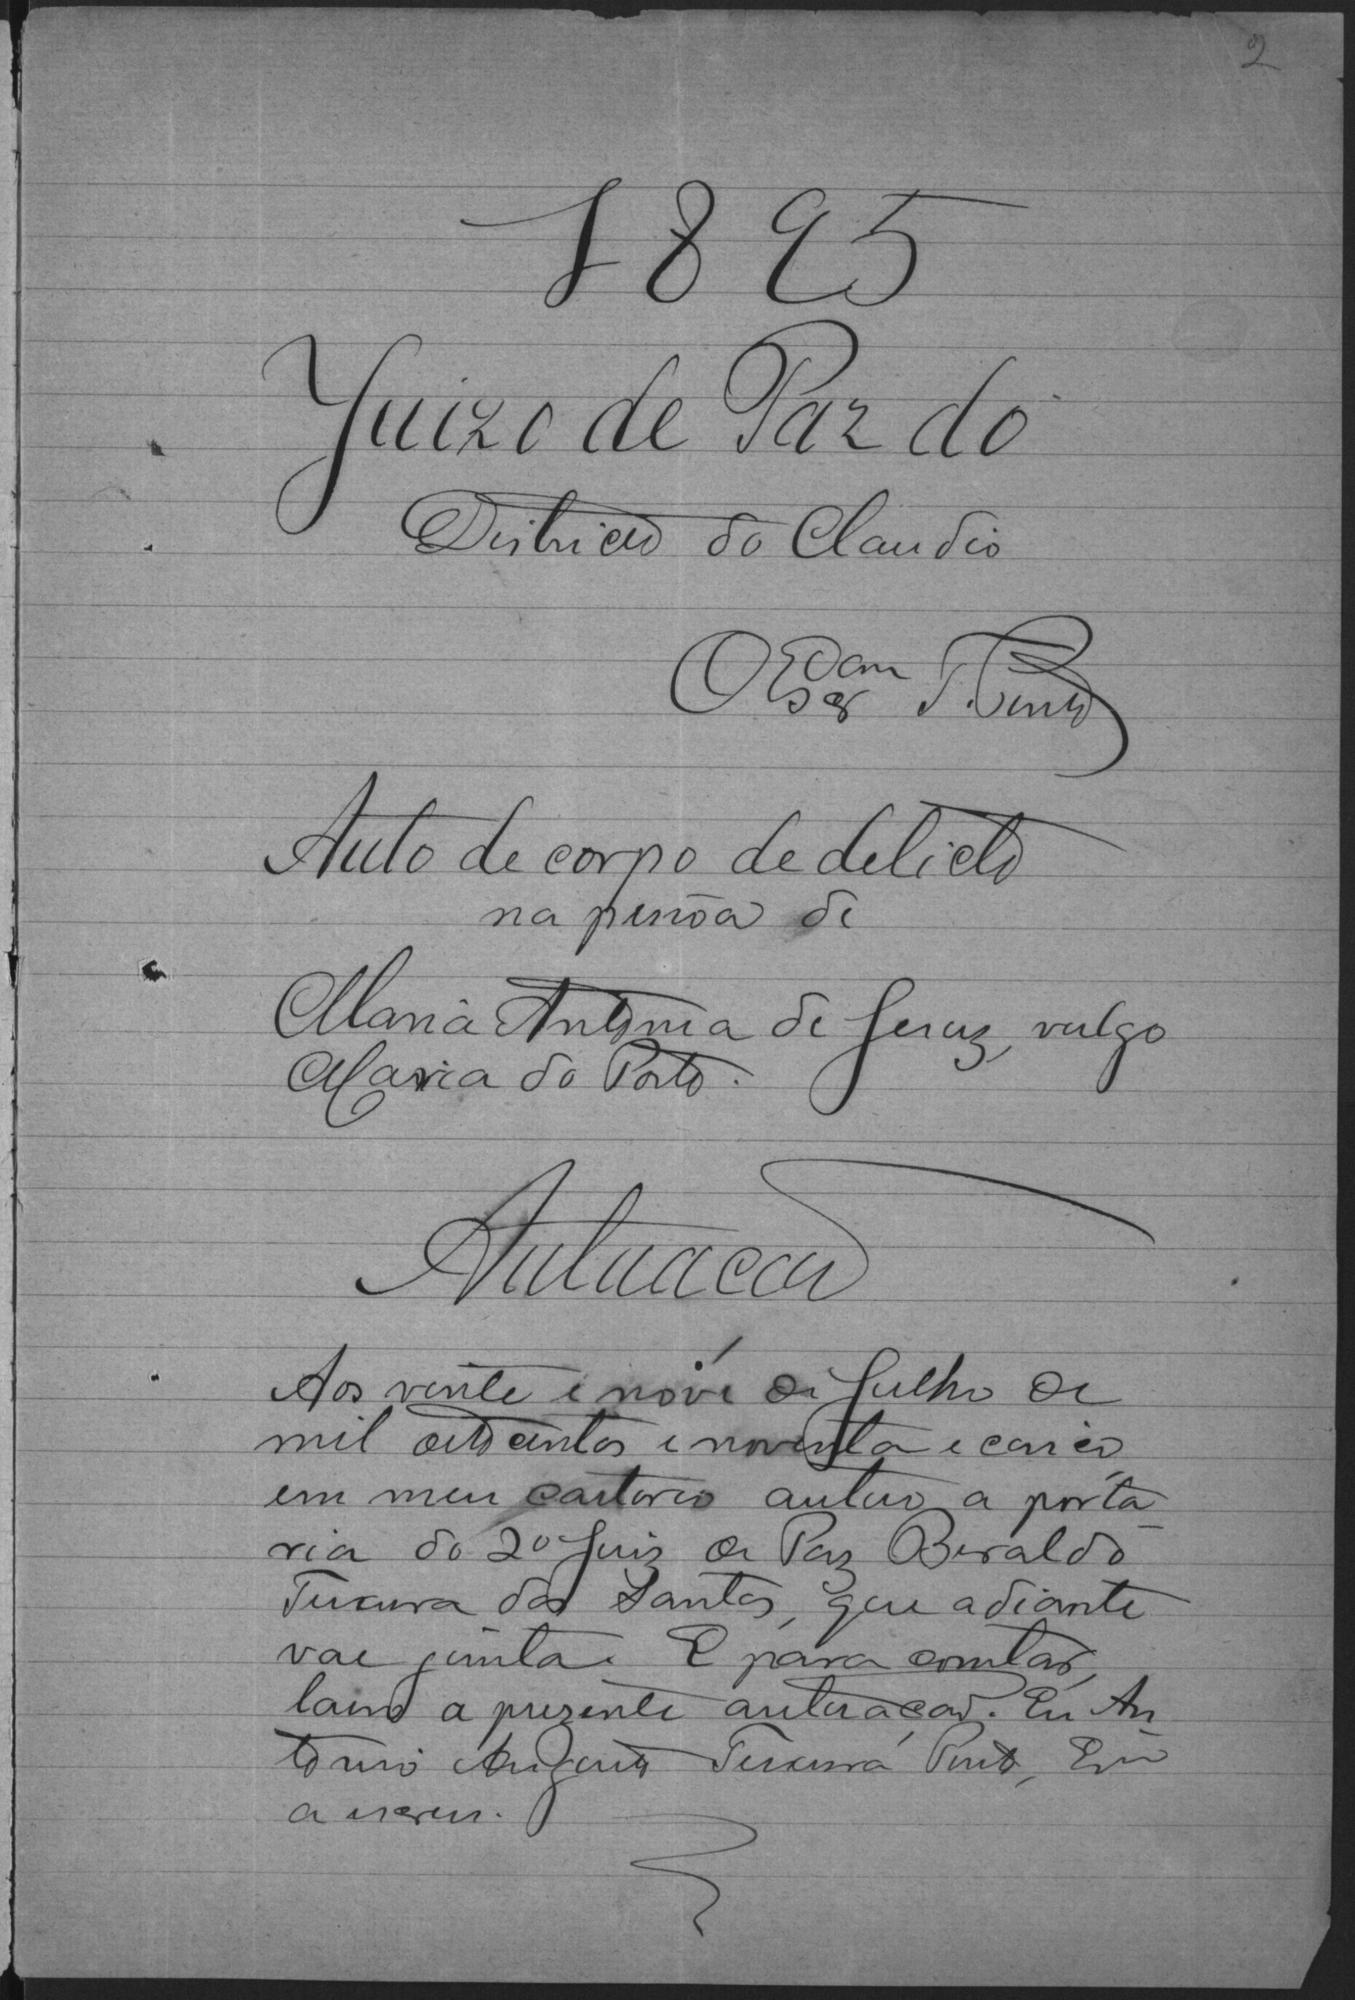 2
1895
Juizo de Paz do
Districto do Claudio
O Escam
T. Pinto
Auto de corpo de delicto
na pessôa de
Maria Antonia de Jesus, vulgo
Maria do Porto.
Autuação
Aos vinte e nove de Julho de
mil oitocentos e noventa e cinco,
em meu cartorio autuo a porta
ria do 2º Juiz de Paz Beraldo
Teixeira dos Santos, que adiante
vae junta. E para constar,
lavro a prezente autuação. Eu An
tonio Augusto Teixeira Pinto, Escam
a escrevi.